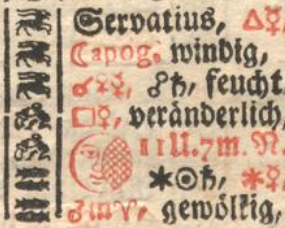 Servatius, △☿,
☾apog. windig,
♂♀☿, ☍♄, feucht.
□☿, veränderlich,
11U.7m.N.
✶☉♄, ✶☿,
♂in♈, gewölkig,